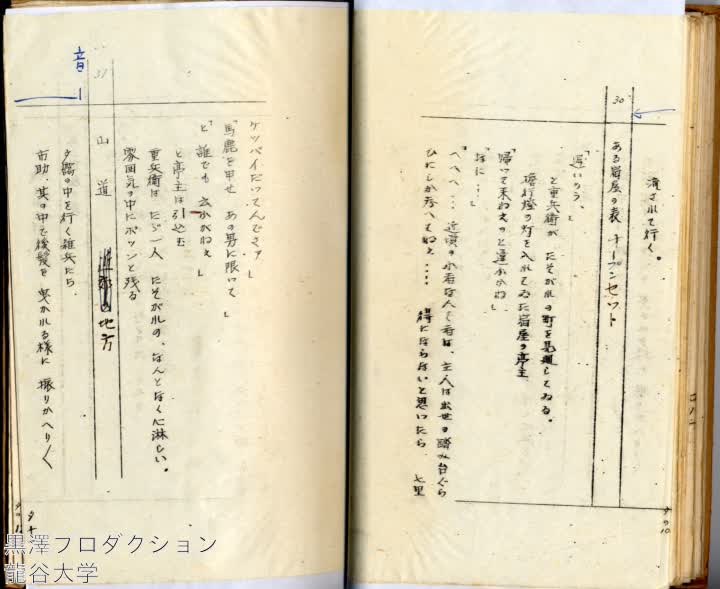 流されて行く。
30
ある宿屋の表 オープンセット
「遅いのう、」
と重兵衛が たそがれの町を見通してゐる。
掛行燈の灯を入れてゐた宿屋の亭主
「帰って来ねえのと違ふかね」
「なに…」
「へへへ… 近頃の小者なんて者は、主人は出世の踏み台ぐら
ひにしか考へてねえ…… 得にならないと思いたら、七里
夕の10
ケッパイだってんでさァ」
「馬鹿を申せ あの男に限って」
「と 誰でも 云ふがねえ」
と亭主は引込む
重兵衛は たった一人 たそがれの、なんとなく心淋しい。
雰囲気の中にポツンと残る
31
山道
地方
夕靄の中を行く雑兵たち。
市助、其の中で後髪を 曳かれる様に 振りかへり〱
音1
黒澤プロダクション
龍谷大学